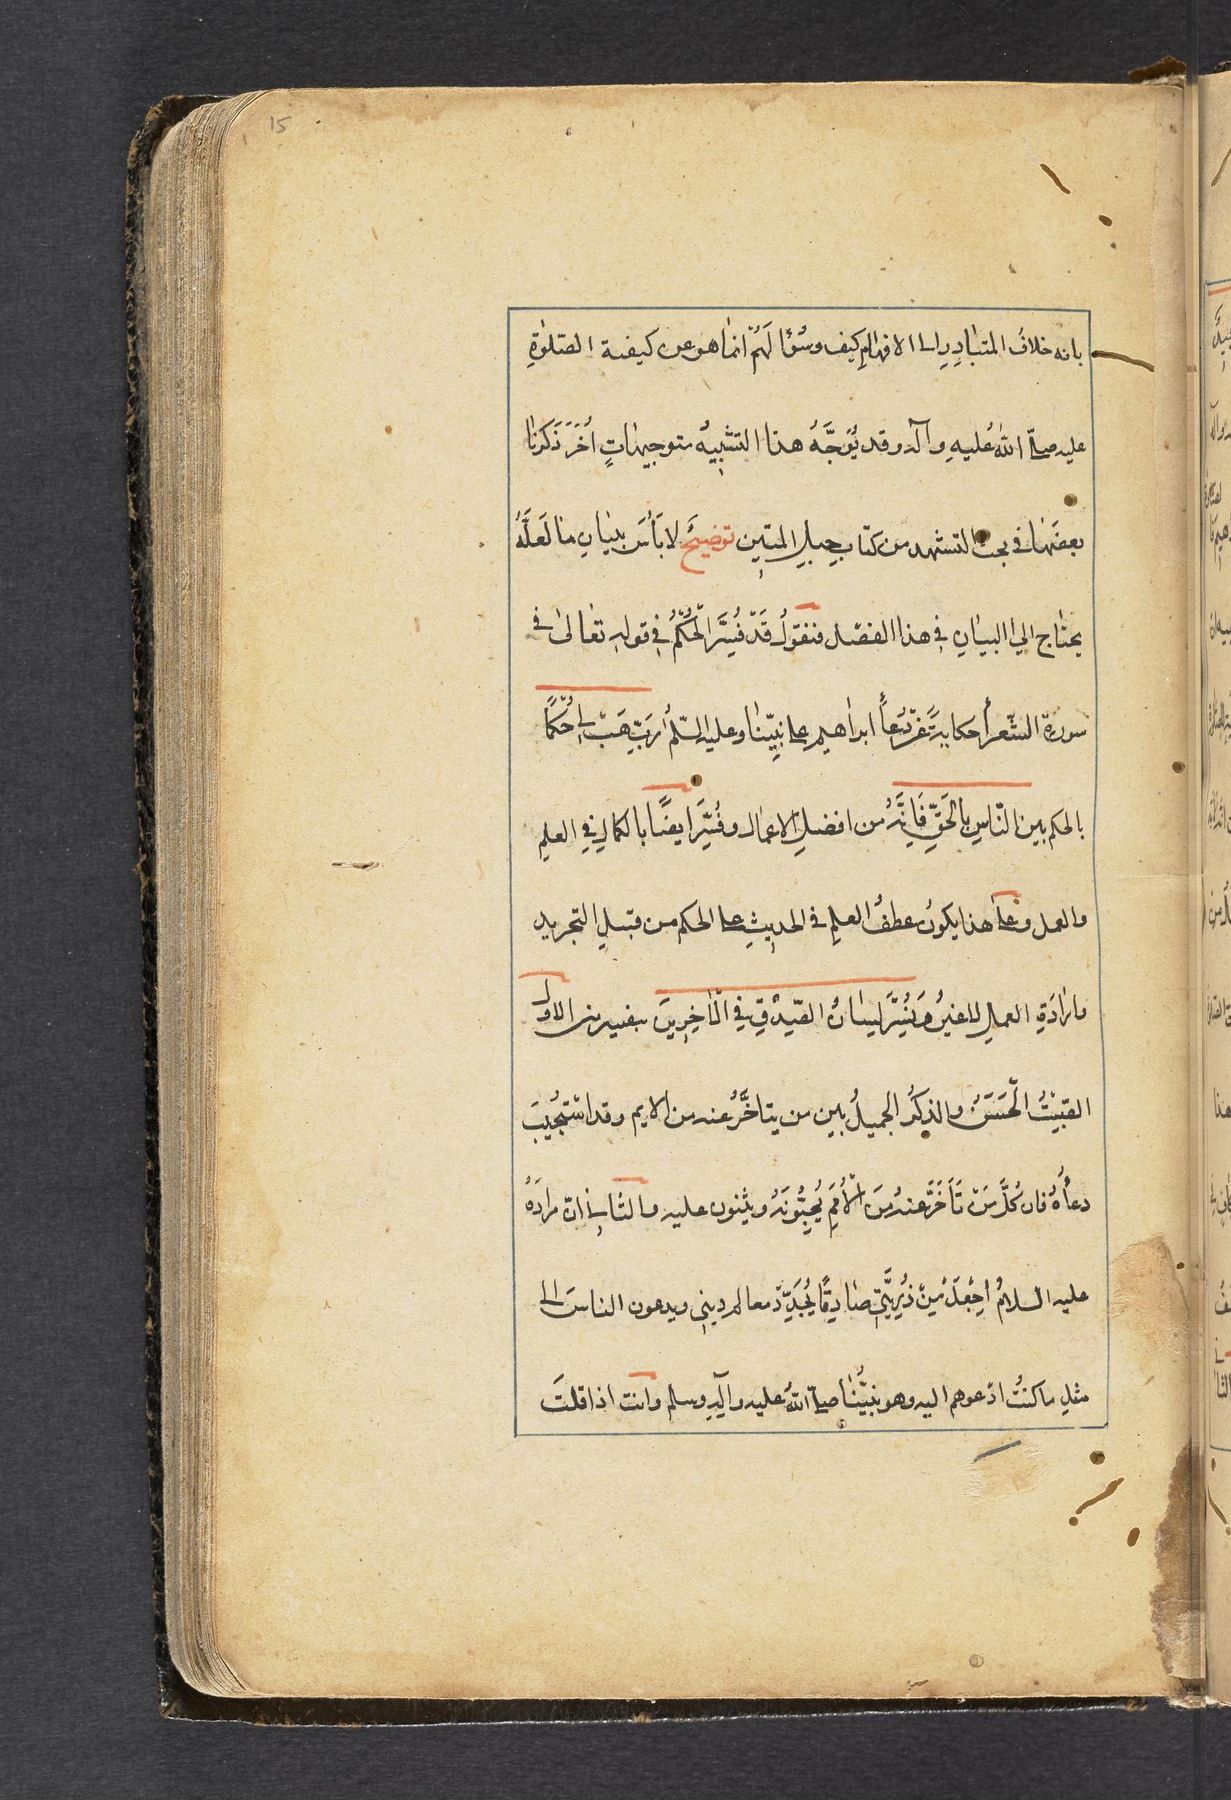 15
بانه خلافُ المتبادِرِ الى الافهام كيف وسُؤالَهُم انما هو عن كيفية الصلوٰةِ
عليه صلّى اللهُ عليهِ وآله وقد يُوَجَّهُ هذا التشبيهُ بتوجيهاتٍ اُخَرَ ذَكَرنا
بعضَها فى بحث التشهد من كتاب حبلِ المتين توضيحٌ لا بَأسَ ببيانِ ما لَعَلَّهُ
يحتاج الى البيانِ فى هذا الفصل فنقولُ قَد فُسِّرَ الحُكمُ فى قولهِ تعالىٰ فى
سورة الشّعرأ حكايةً عَن دُعأ ابراهيم على نبيّنا وعليه السّلمُ رَبِّ هَبْ لى حُكمًا
بالحكم بين النّاسِ بِالحَقِّ فَإنَّهُ من افضلِ الاعمال وفُسِّرَ ايضًا بالكمالِ فى العلمِ
والعمل وعلى هذا يكونُ عطفُ العلمِ فى الحديثِ على الحكم من قبيلِ التجريد
بارادَةِ العملِ لا غيرُ وَيُفَسَّرُ لِسانُ الصِّدْقِ فِى الآخِرِينَ بتفسيرين الاول
الصّيتُ الحَسَنُ والذِكرُ الجميلُ بين من يتاخَّرُ عنه من الامم وقد اسْتُجيبَ
دعأُهُ فان كُلَّ مَن تَأَخَّرَ عنهُ مِنَ الأُمَمِ يُحِبُّونَهُ ويثنون عليه والثانى انّ مرادَهُ
عليه السلامُ اجْعَل مِن ذُرِيَّتى صادِقًا يُجَدِّدُ معالم دينى ويدعون الناسَ الى
مثلِ ما كنتُ ادعوهم اليه وهو نبيُّنا صلّى اللهُ عليه وآلِهِ وسلم وانت اذا قلتَ